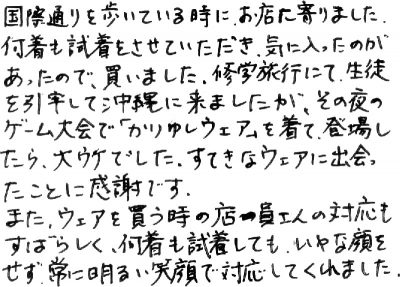 国際通りを歩いている時に、お店に寄りました。
何着も試着をさせていただき、気に入ったのが
あったので、買いました。修学旅行にて、生徒
を引率して沖縄に来ましたが、その夜の
ゲーム大会で「かりゆしウェア」を着て、登場し
たら、大ウケでした。すてきなウェアに出会っ
たことに感謝です。
また、ウェアを買う時の店員さんの対応も
すばらしく、何着も試着しても、いやな顔を
せず、常に明るい笑顔で対応してくれました。